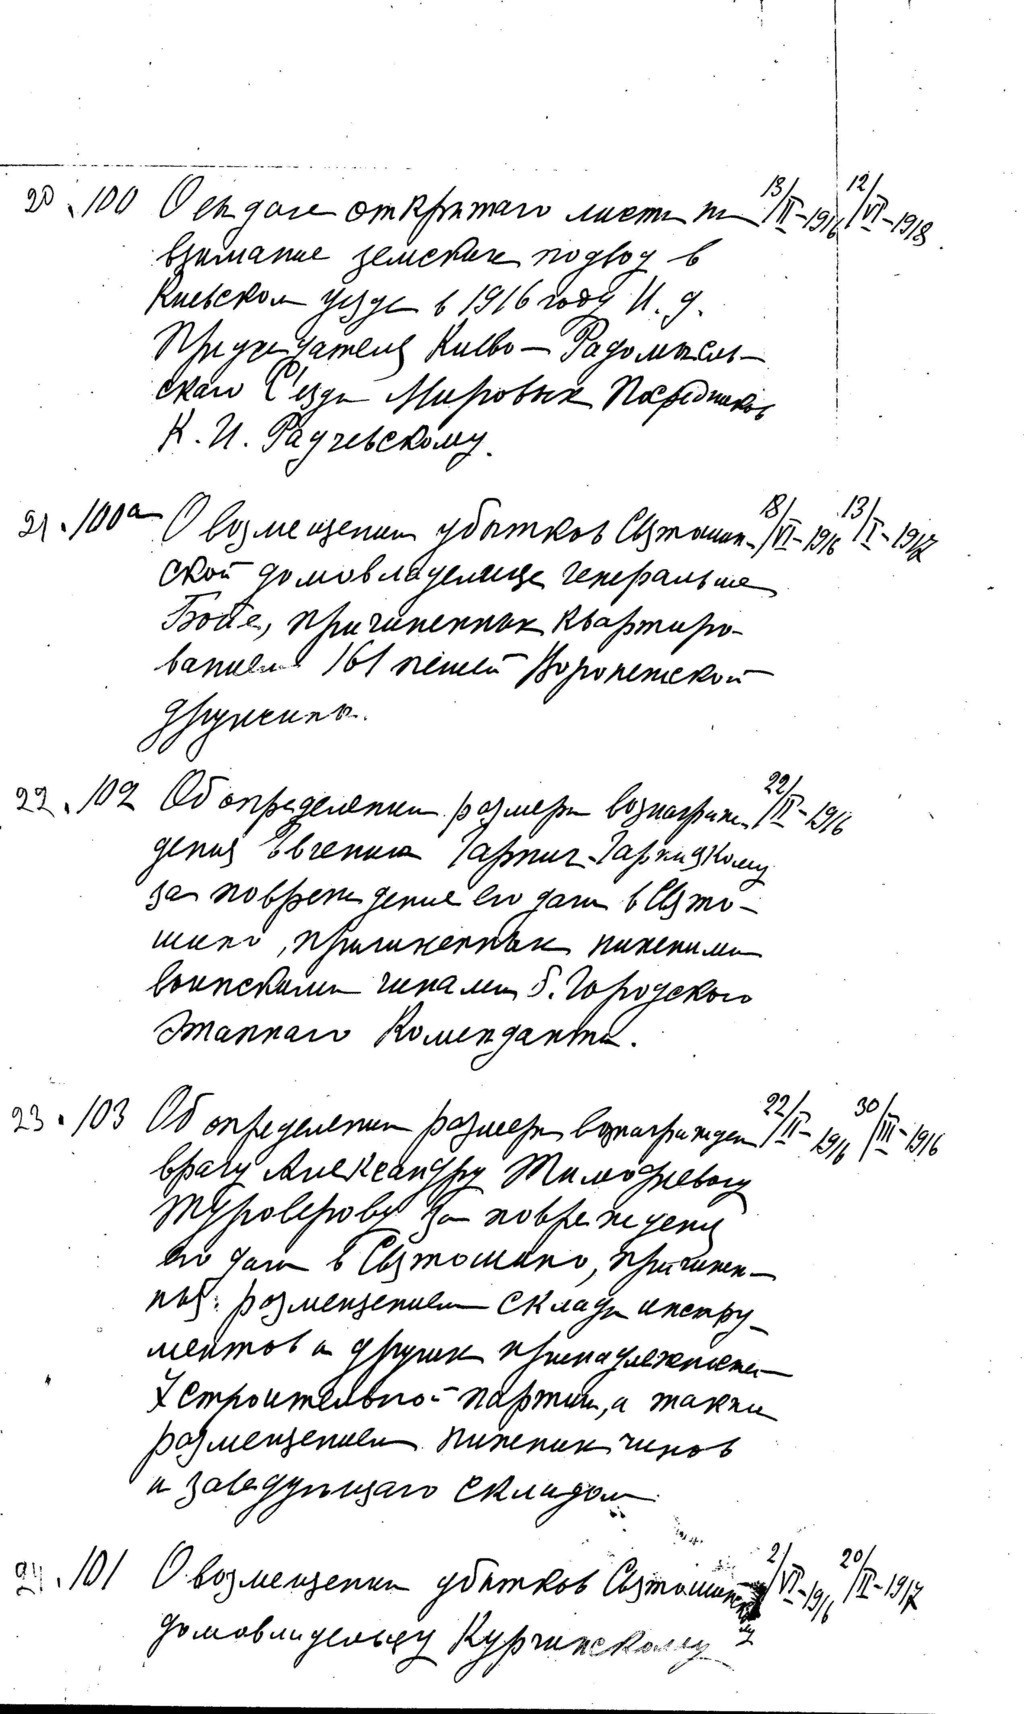 20. 100 О выдаче открытаго листа на 13/II-1916 12/VI-1918
взимание земских подвод в
Киевском уезде в 1916 году И. д.
Председателя Киево-Радомысль-
скаго Съезда Мировых Посредников
К. И. Радчевскому.
21. 100а О возмещении убытков Святошин- 18/VI-1916 13/I-1917
ской домовладелице генеральше
Бойе, причиненных квартиро-
ванием 161 пешей Воронежской
дружины.
22. 102 Об определении размера вознаграж- 22/II-1916
дения Евгению
за повреждение его дачи в Свято-
шино, причиненных нижними
воинскими чинами б. Городского
Этапнаго Коменданта.
23. 103 Об определении размера вознагражден 22/II-1916 30/III-1916
врачу Александру Тимофеевичу
Туроверову за повреждения
его дачи в Святошино, причинен-
ныя: размещением склада инстру-
ментов и других принадлежностей
7 строительной партии, а также
размещением нижних чинов
и заведующаго складом
24. 101 О возмещении убытков Святошинскому 2/VI-1916 20/II-1917
домовладельцу Курчинскому